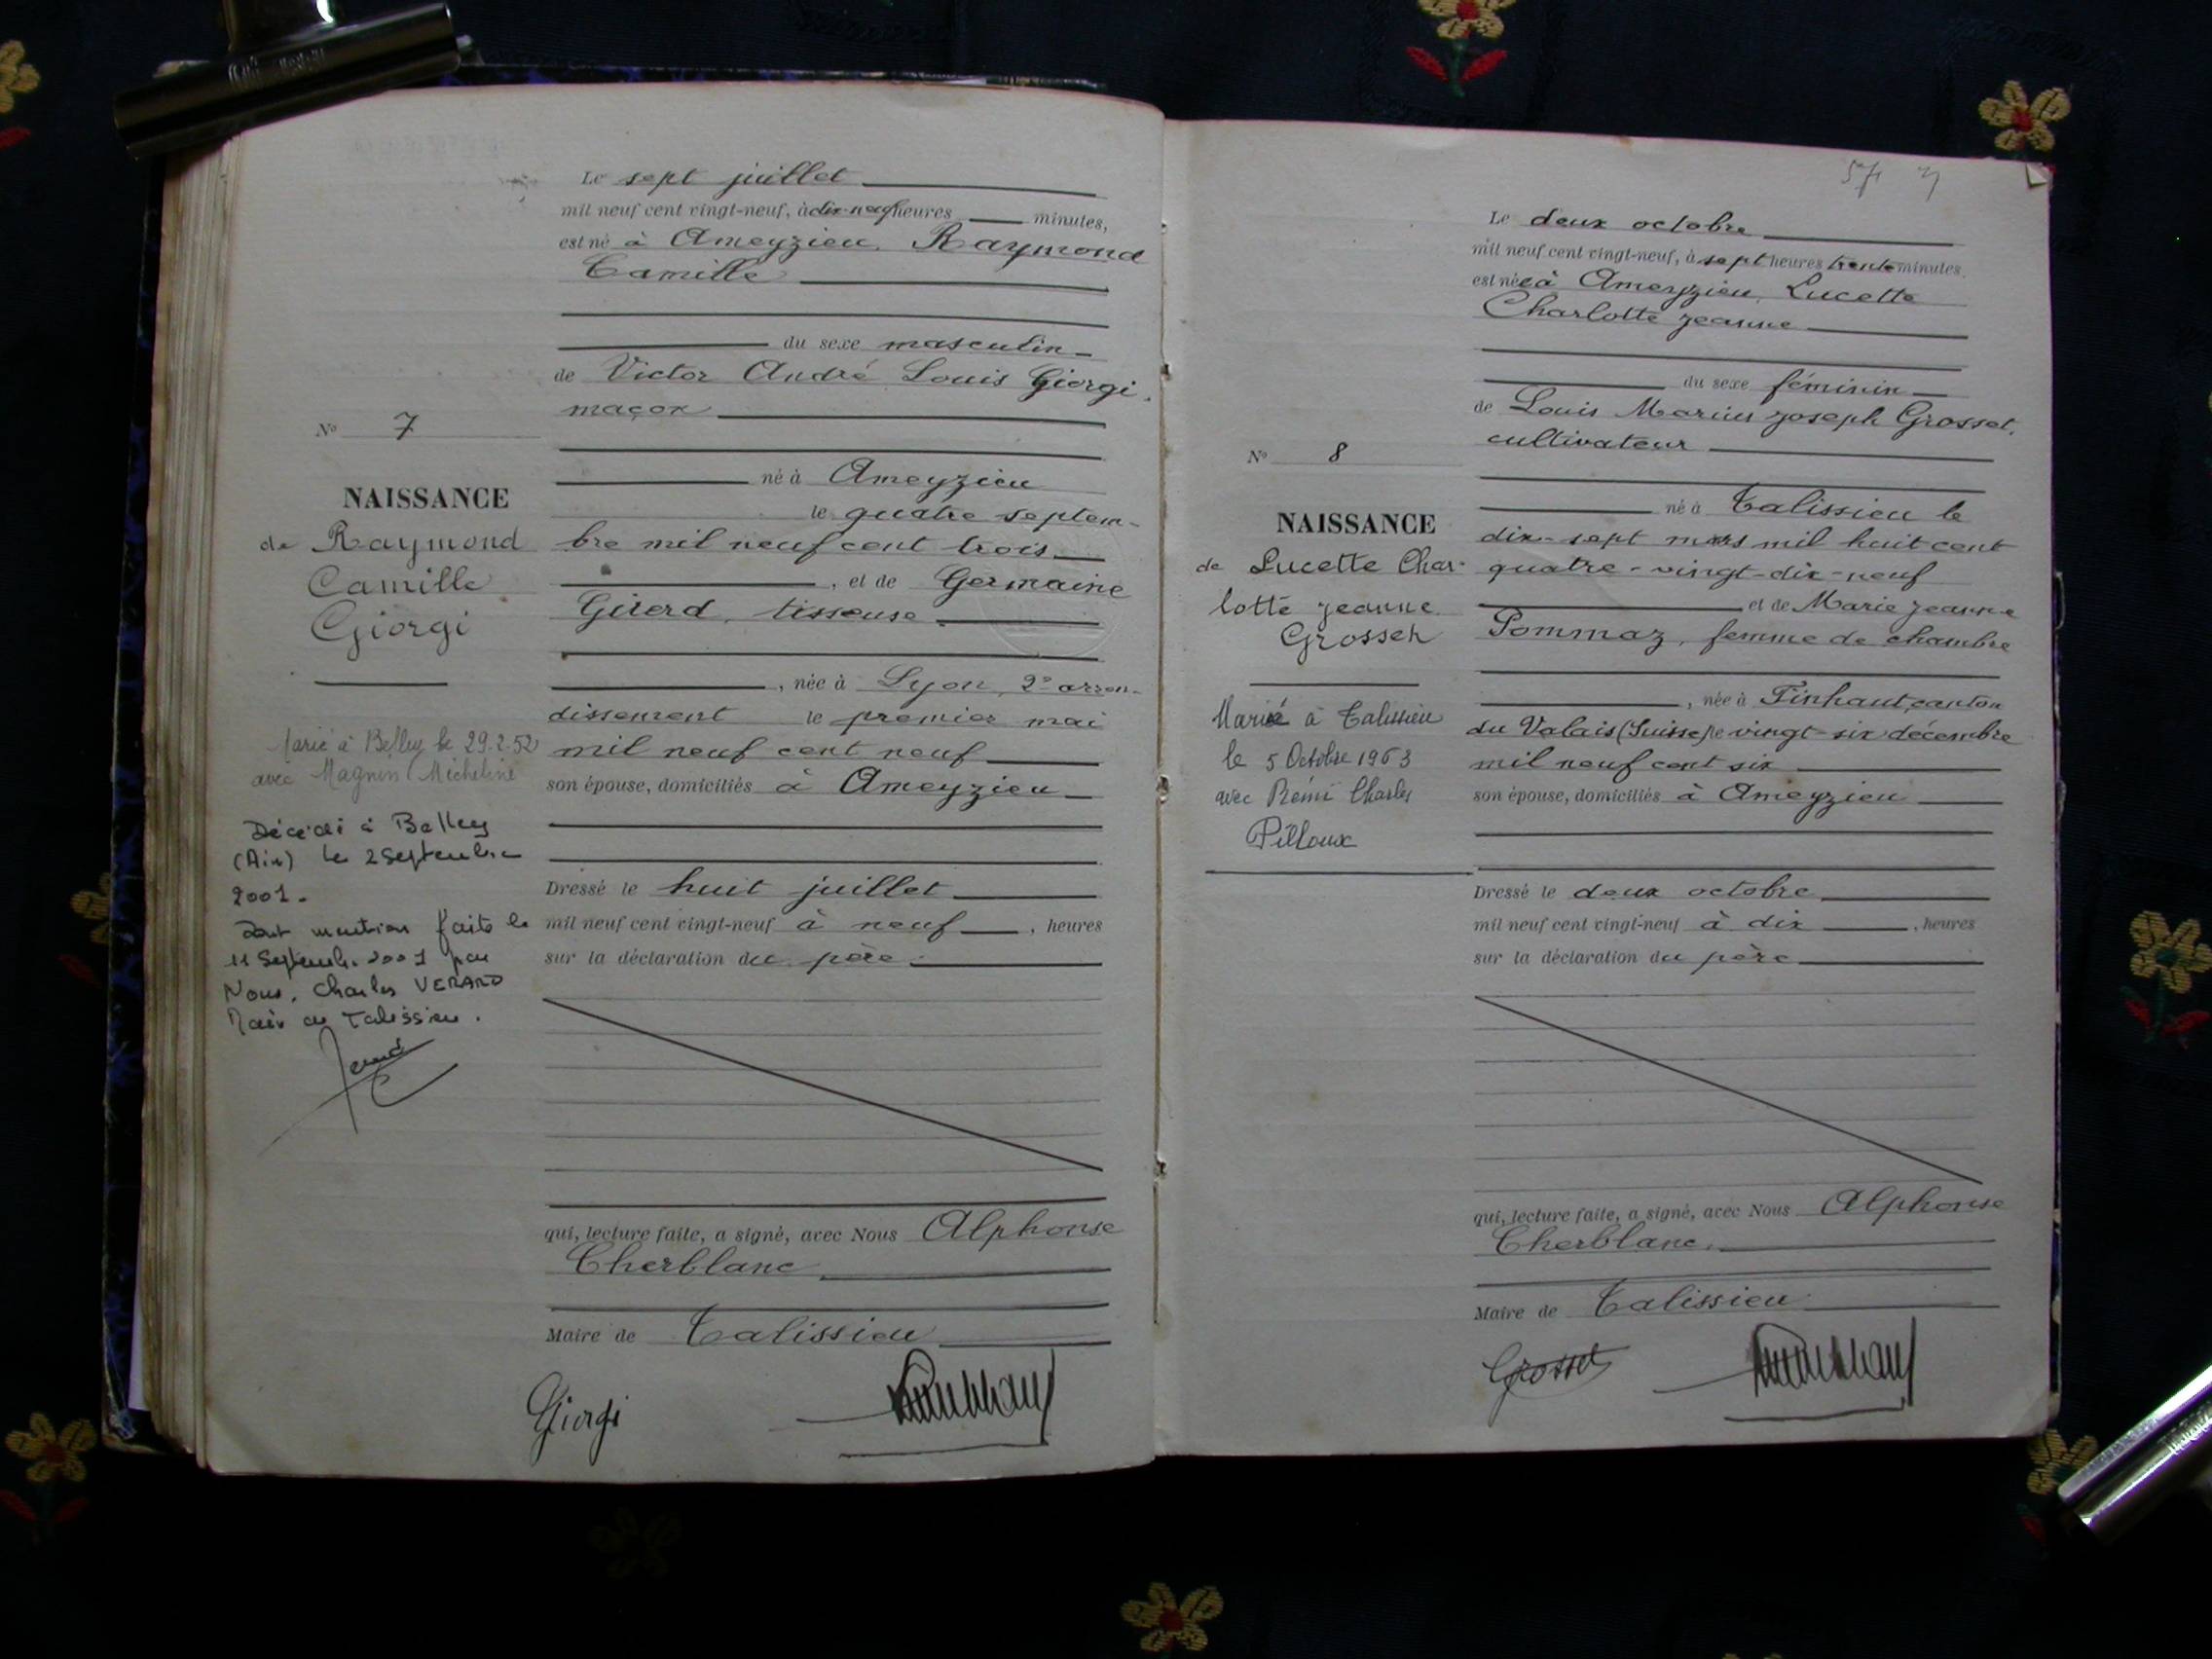 Le sept juillet
mil neuf cent vingt-neuf, à dix-neuf heures minutes,
est né à Ameyzieu, Raymond
Camille
du sexe masculin
de Victor André Louis Giorgi,
maçon
N° 7
né à Ameyzieu
NAISSANCE
le quatre septem-
de Raymond
bre mil neuf cent trois
Camille
, et de Germaine
Giorgi
Girerd, tisseuse
, née à Lyon, 2e arron-
dissement le premier mai
Marié à Belley le 29.2.52
mil neuf cent neuf
avec Magnin Micheline
son épouse, domiciliés à Ameyzieu
Décédé à Belley
(Ain) le 2 Septembre
2001.
Dressé le huit juillet
mil neuf cent vingt-neuf à neuf , heures
Dont mention faite le
sur la déclaration du père.
11 Septemb. 2001 par
Nous, Charles VERARD
Maire de Talissieu.
qui, lecture faite, a signé, avec Nous Alphonse
Cherblanc
Maire de Talissieu
Giorgi
57
Le deux octobre
mil neuf cent vingt-neuf, à sept heures trente minutes,
est née à Ameyzieu, Lucette
Charlotte Jeanne
du sexe féminin
de Louis Marius Joseph Grosset,
cultivateur
N° 8
né à Talissieu le
NAISSANCE
dix-sept mars mil huit cent
de Lucette Char-
quatre-vingt-dix-neuf
lotte Jeanne
et de Marie Jeanne
Grosset
Pommaz, femme de chambre
, née à Finhaut, canton
Marié à Talissieu
du Valais (Suisse) le vingt-six décembre
le 5 Octobre 1963
mil neuf cent six
avec Rémi Charles
son épouse, domiciliés à Ameyzieu
Pilloux
Dressé le deux octobre
mil neuf cent vingt-neuf à dix , heures
sur la déclaration du père
qui, lecture faite, a signé, avec Nous Alphonse
Cherblanc,
Maire de Talissieu
Grosset